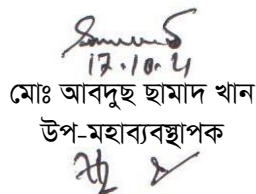 17.10.21
মোঃ আবদুছ ছামাদ খান
উপ-মহাব্যবস্থাপক